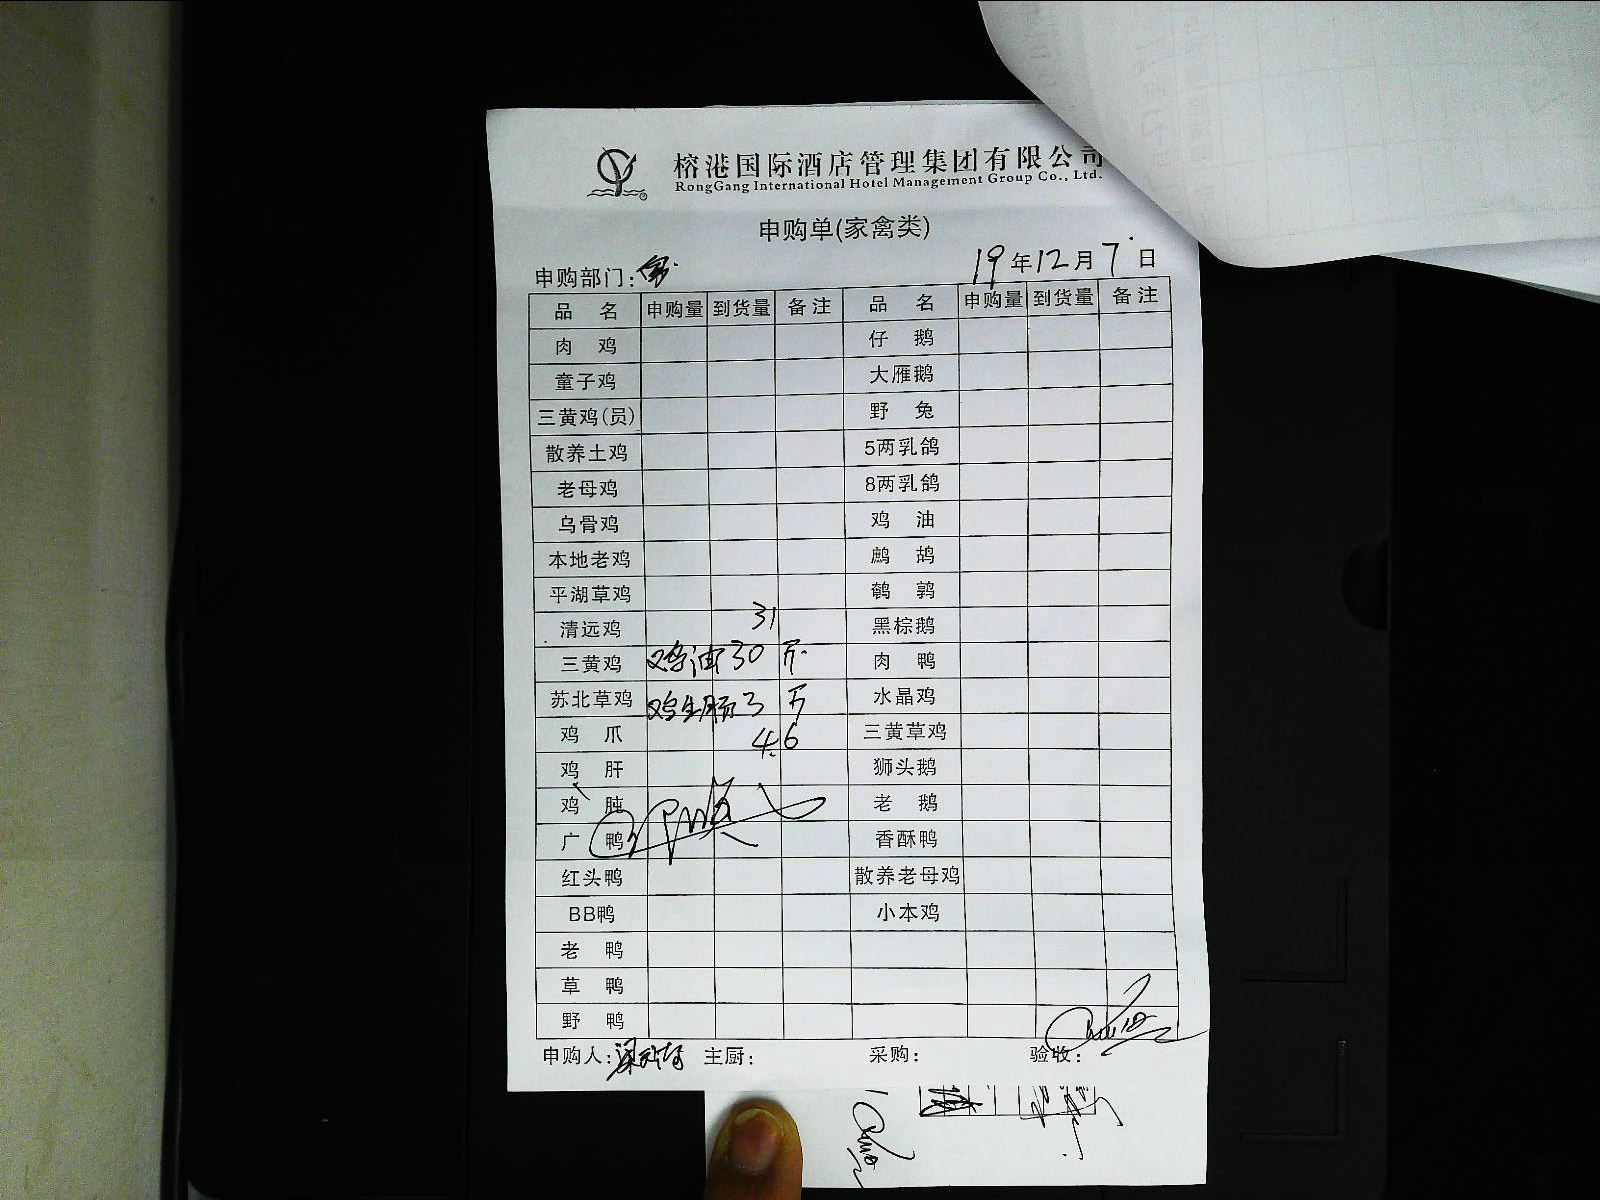 榕港国际酒店管理集团有限公司
RongGang International Hotel Management Group Co., Ltd.
申购单(家禽类)
申购部门:
19年12月7日
品 名 申购量 到货量 备注 品 名 申购量 到货量 备注
肉 鸡 仔 鹅
童子鸡 大雁鹅
三黄鸡(员) 野 兔
散养土鸡 5两乳鸽
老母鸡 8两乳鸽
乌骨鸡 鸡 油
本地老鸡 鹧 鸪
平湖草鸡 鹌 鹑
清远鸡 31 黑棕鹅
三黄鸡 鸡油30 斤 肉 鸭
苏北草鸡 鸡生肠3 斤 水晶鸡
鸡 爪 4.6 三黄草鸡
鸡 肝 狮头鹅
鸡 肫 老 鹅
广 鸭 香酥鸭
红头鸭 散养老母鸡
BB鸭 小本鸡
老 鸭
草 鸭
野 鸭
申购人: 主厨: 采购: 验收: